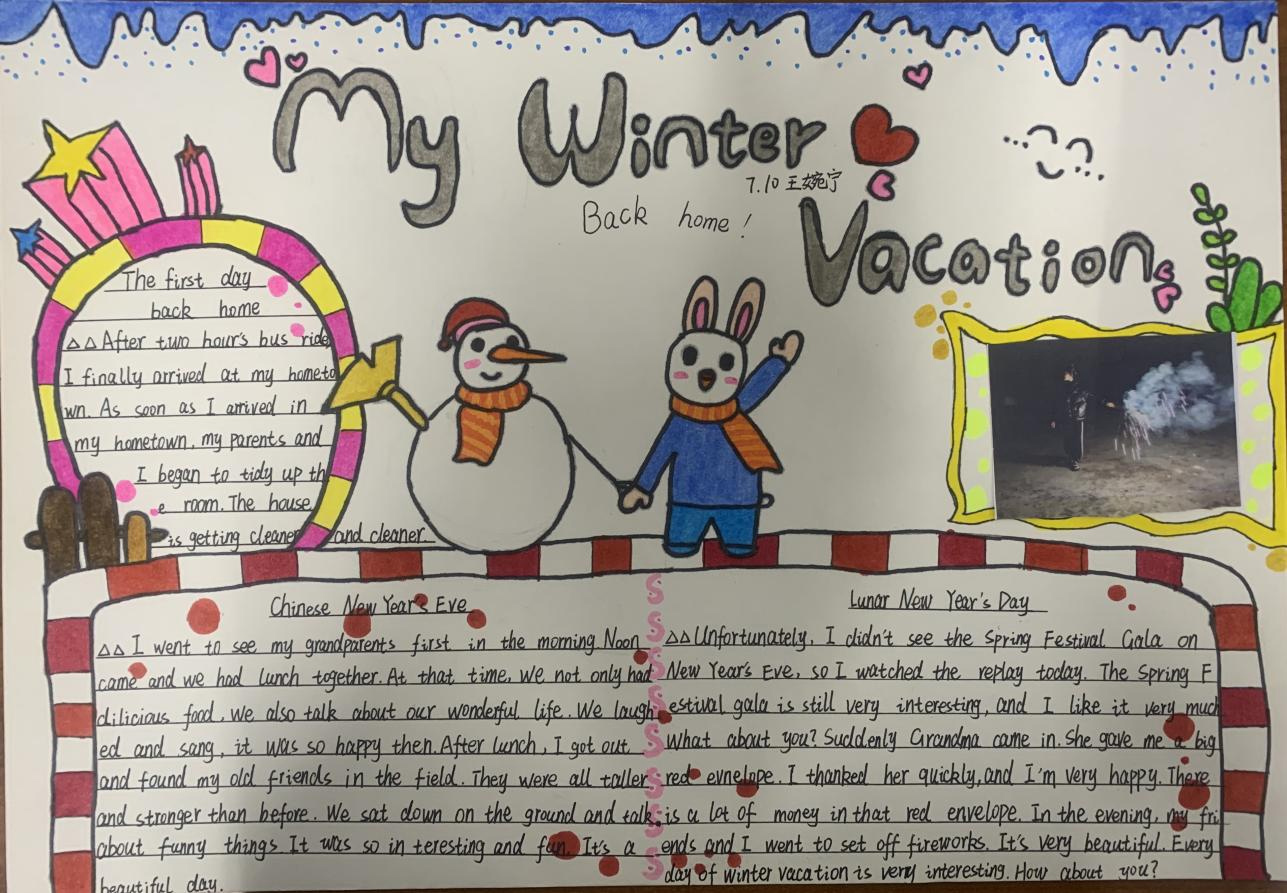 My Winter
Vacation
7.10 王婉宁
Back home!
The first day
back home
△△After two hour's bus ride
I finally arrived at my hometo
wn. As soon as I arrived in
my hometown, my parents and
I began to tidy up th
e room. The house
is getting cleaner and cleaner.
Chinese New Year's Eve
△△ I went to see my grandparents first in the morning. Noon
came and we had lunch together. At that time, we not only had
dilicious food, we also talk about our wonderful life. We laugh
ed and sang, it was so happy then. After lunch, I got out
and found my old friends in the field. They were all taller
and stronger than before. We sat down on the ground and talk
about funny things It was so in teresting and fun. It's a
beautiful day.
Lunar New Year's Day
△△Unfortunately, I didn't see the Spring Festival Gala on
New Year's Eve, so I watched the replay today. The Spring F
estival gala is still very interesting, and I like it very much
What about you? Suddenly Grandma came in. She gave me a big
red evnelope. I thanked her quickly, and I'm very happy. There
is a lot of money in that red envelope. In the evening, my fri
ends and I went to set off fireworks. It's very beautiful. Every
day of winter vacation is very interesting. How about you?